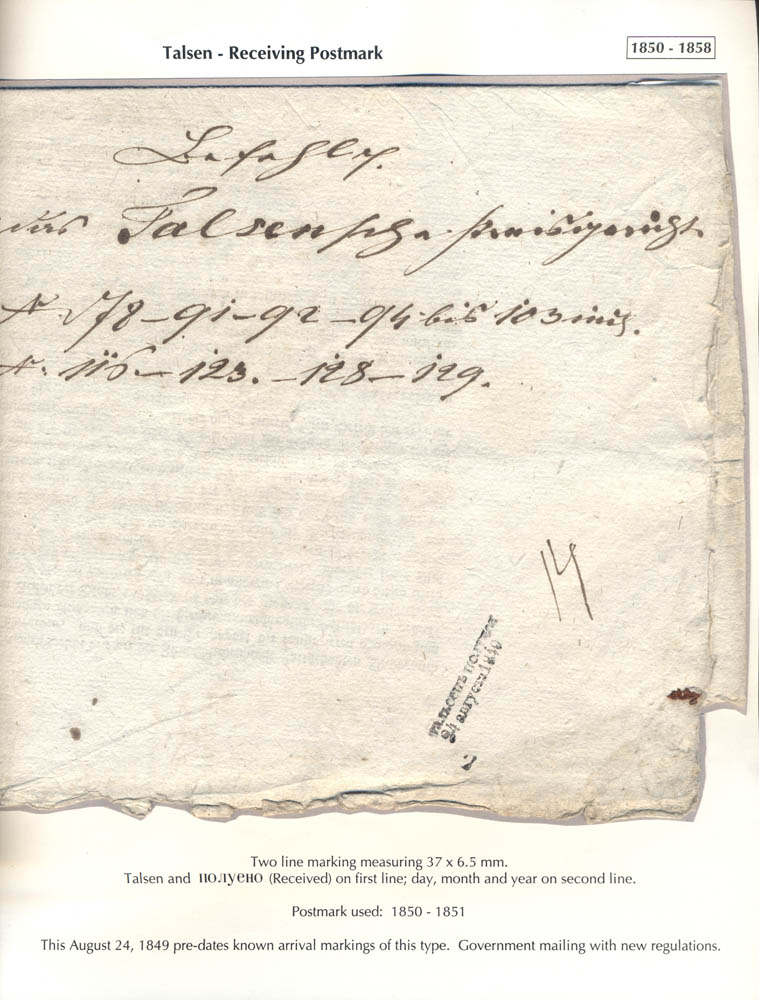 Talsen - Receiving Postmark
1850 - 1858
Befehle.
das Talsensche Kreisgericht
N. 78 - 91 - 92 - 94 bis 103 incl.
N. 116 - 123. - 128 - 129.
14
тальсенъ
24 августа 1849
2
Two line marking measuring 37 x 6.5 mm.
Talsen and полуено (Received) on first line; day, month and year on second line.
Postmark used: 1850 - 1851
This August 24, 1849 pre-dates known arrival markings of this type. Government mailing with new regulations.